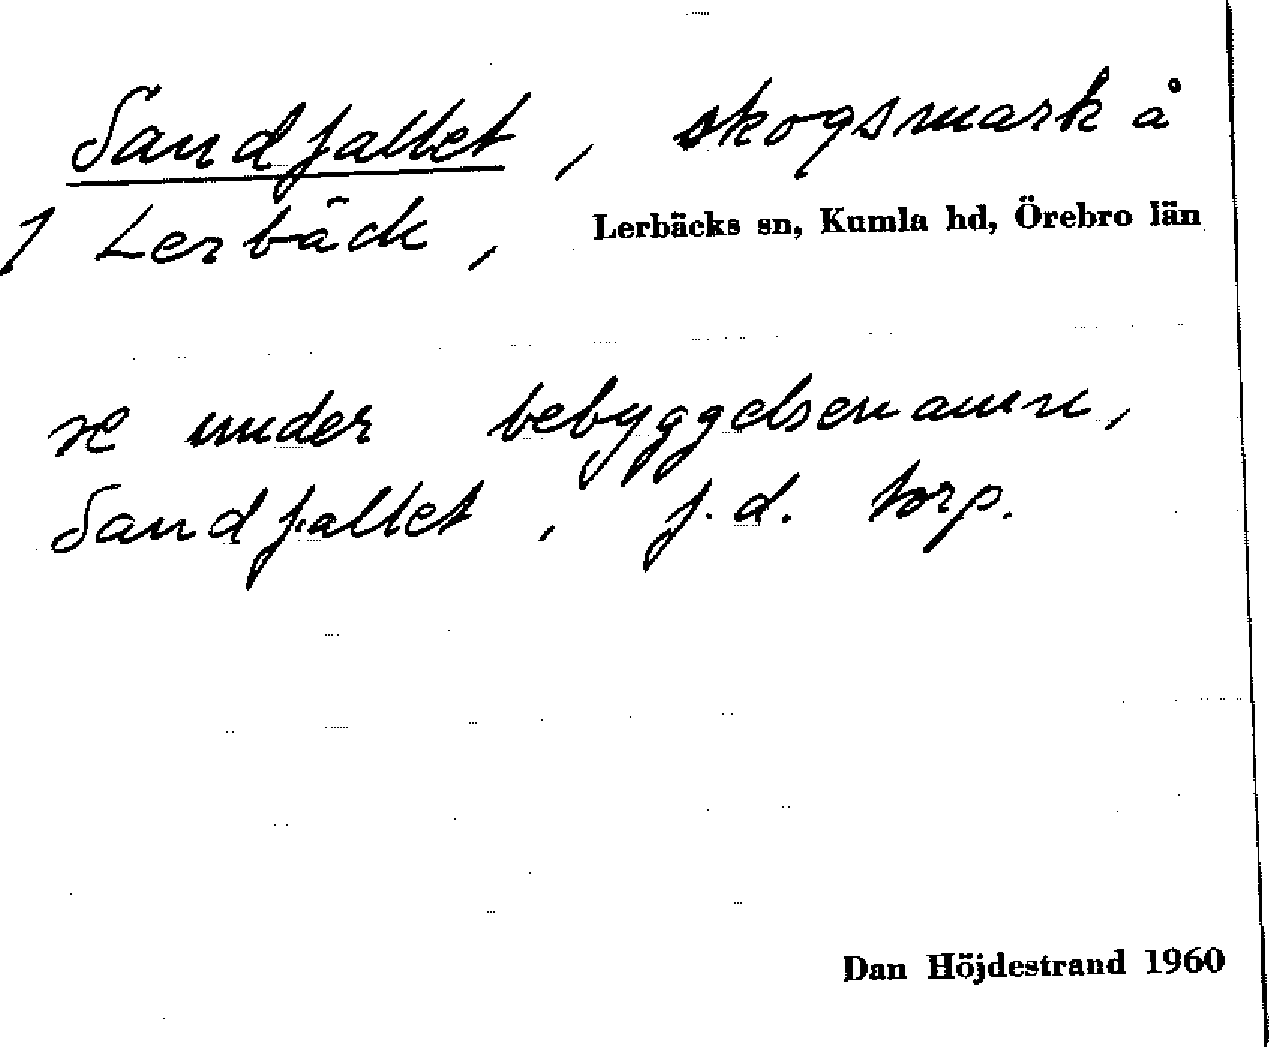 Sandfallet, skogsmark å
1 Lerbäck, Lerbäcks sn, Kumla hd, Örebro län
se under bebyggelsenamn,
Sandfallet, f.d. torp.
Dan Höjdestrand 1960